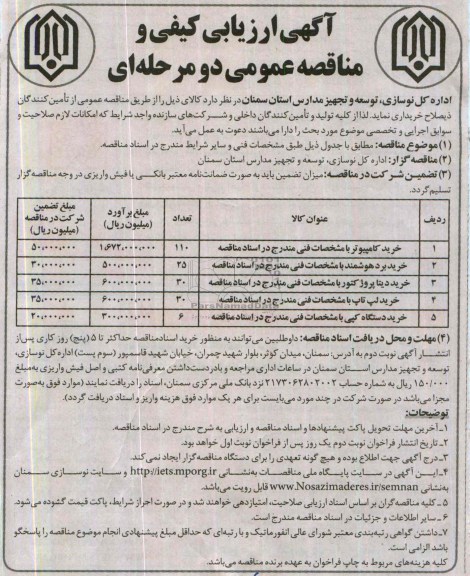 آگهی ارزیابی کیفی و
مناقصه عمومی دو مرحله‌ای
اداره کل نوسازی، توسعه و تجهیز مدارس استان سمنان در نظر دارد کالای ذیل را از طریق مناقصه عمومی از تأمین کنندگان
ذیصلاح خریداری نماید. لذا از کلیه تولید و تأمین کنندگان داخلی و شرکت‌های سازنده واجد شرایط که امکانات لازم صلاحیت و
سوابق اجرایی و تخصصی موضوع مورد بحث را دارا می‌باشند دعوت به عمل می‌آید.
(۱) موضوع مناقصه: مطابق با جدول ذیل طبق مشخصات فنی و سایر شرایط مندرج در اسناد مناقصه.
(۲) مناقصه گزار: اداره کل نوسازی، توسعه و تجهیز مدارس استان سمنان
(۳) تضمین شرکت در مناقصه: میزان تضمین باید به صورت ضمانت‌نامه معتبر بانکی یا فیش واریزی در وجه مناقصه گزار
تسلیم گردد.
ردیف عنوان کالا تعداد مبلغ برآورد (میلیون ریال) مبلغ تضمین شرکت در مناقصه (میلیون ریال)
۱ خرید کامپیوتر با مشخصات فنی مندرج در اسناد مناقصه ۱۱۰ ۱,۶۷۲,۰۰۰,۰۰۰ ۵۰,۰۰۰,۰۰۰
۲ خرید برد هوشمند با مشخصات فنی مندرج در اسناد مناقصه ۲۵ ۵۰۰,۰۰۰,۰۰۰ ۳۰,۰۰۰,۰۰۰
۳ خرید دیتا پروژکتور با مشخصات فنی مندرج در اسناد مناقصه ۳۰ ۶۰۰,۰۰۰,۰۰۰ ۳۵,۰۰۰,۰۰۰
۴ خرید لپ تاپ با مشخصات فنی مندرج در اسناد مناقصه ۳۰ ۶۰۰,۰۰۰,۰۰۰ ۳۵,۰۰۰,۰۰۰
۵ خرید دستگاه کپی با مشخصات فنی مندرج در اسناد مناقصه ۶ ۳۰۰,۰۰۰,۰۰۰ ۲۰,۰۰۰,۰۰۰
ParsNamadData
(۴) مهلت و محل دریافت اسناد مناقصه: داوطلبین می‌توانند به منظور خرید اسناد مناقصه حداکثر تا ۵ (پنج) روز کاری پس از
انتشار آگهی نوبت دوم به آدرس: سمنان، میدان کوثر، بلوار شهید چمران، خیابان شهید قاسمپور (سوم پست) اداره کل نوسازی،
توسعه و تجهیز مدارس استان سمنان در ساعات اداری مراجعه و با در دست داشتن معرفی‌نامه کتبی و اصل فیش واریزی به مبلغ
۱۵۰/۰۰۰ ریال به شماره حساب ۲۱۷۳۰۶۲۸۰۲۰۰۲ نزد بانک ملی مرکزی سمنان، اسناد را دریافت نمایند (موارد فوق به صورت
مجزا می‌باشد در صورت شرکت در چند مورد می‌بایست برای هر یک موارد فوق هزینه واریز و اسناد دریافت گردد).
توضیحات:
۱ـ آخرین مهلت تحویل پاکت پیشنهادها و اسناد مناقصه و ارزیابی به شرح مندرج در اسناد مناقصه.
۲ـ تاریخ انتشار فراخوان نوبت دوم یک روز پس از فراخوان نوبت اول خواهد بود.
۳ـ درج آگهی جهت اطلاع بوده و هیچ گونه تعهدی را برای دستگاه مناقصه گزار ایجاد نمی‌کند.
۴ـ این آگهی در سایت پایگاه ملی مناقصات به‌نشانی http://iets.mporg.ir و سایت نوسازی سمنان
به‌نشانی www.Nosazimaderes.ir/semnan قابل رویت می‌باشد.
۵ـ کلیه مناقصه گران بر اساس اسناد ارزیابی صلاحیت، امتیازدهی خواهند شد و در صورت احراز شرایط، پاکت قیمت گشوده می‌شود.
۶ـ سایر اطلاعات و جزئیات در اسناد مناقصه مندرج است.
۷ـ داشتن گواهی رتبه‌بندی معتبر شورای عالی انفورماتیک و با رتبه‌ای که حداقل مبلغ پیشنهادی انجام موضوع مناقصه را پاسخگو
باشد الزامی است.
کلیه هزینه‌های مربوط به چاپ فراخوان به عهده برنده مناقصه می‌باشد.